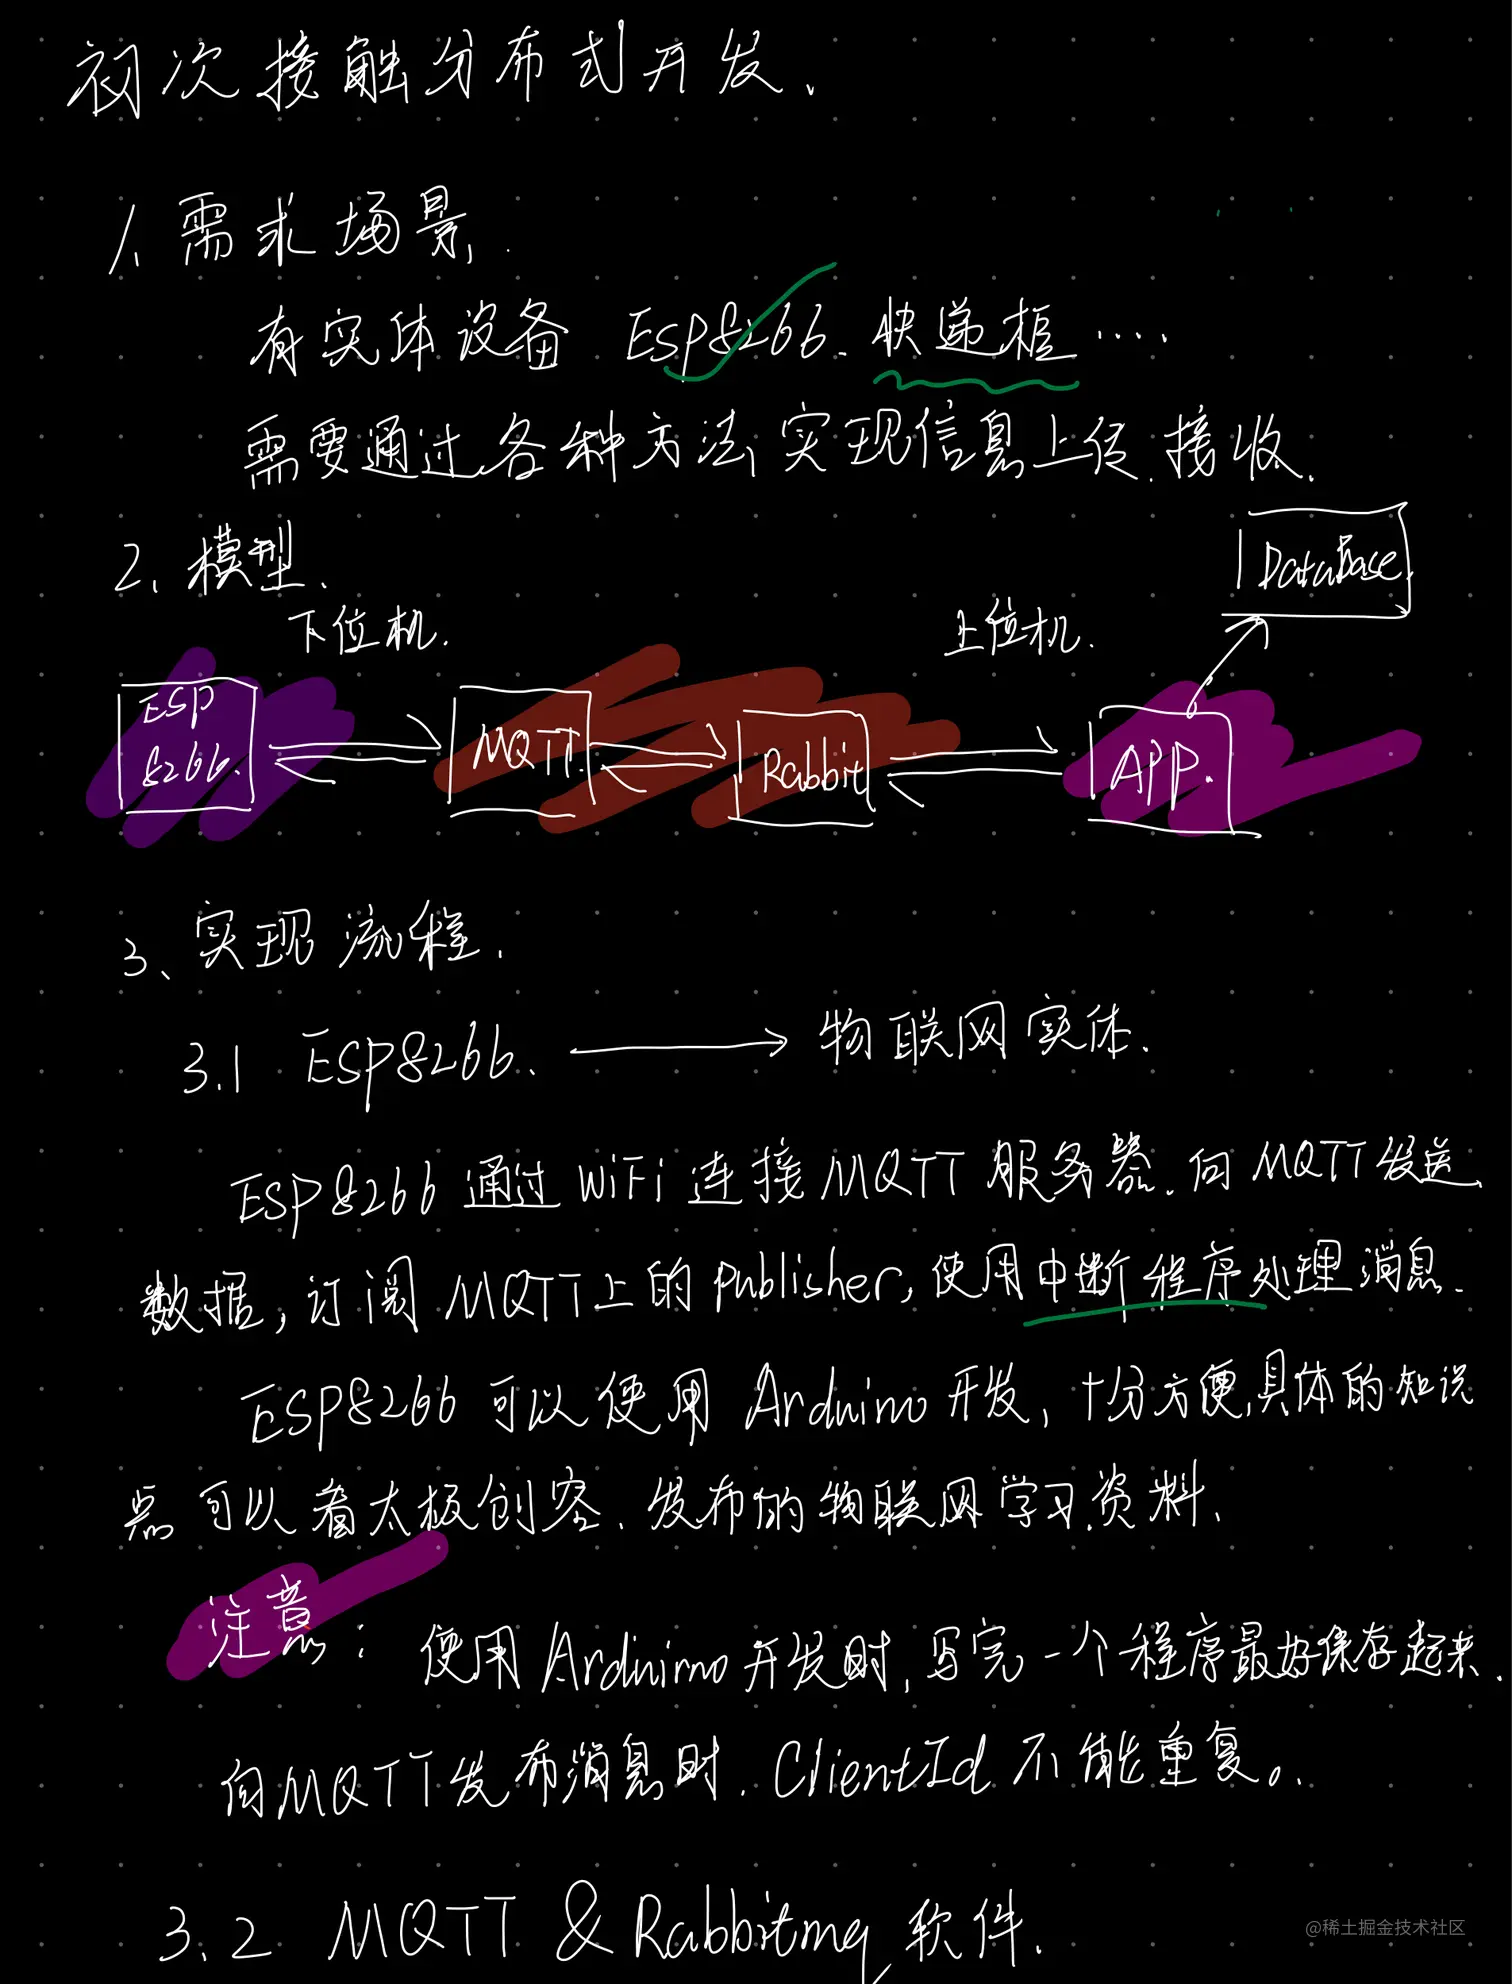 初次接触分布式开发.
1、需求场景.
有实体设备 Esp8266、快递柜····
需要通过各种方法实现信息上传、接收.
2、模型.
DataBase.
下位机.
上位机.
ESP
8266.
MQTT.
Rabbit
APP.
3、实现流程.
3.1 ESP8266. 物联网实体.
ESP8266 通过 WiFi 连接 MQTT 服务器. 向 MQTT 发送
数据, 订阅 MQTT上的 Publisher, 使用中断程序处理消息.
ESP8266 可以使用 Arduino 开发, 十分方便,具体的知识
点可以看太极创客、发布的物联网学习资料.
注意: 使用 Arduino 开发时, 写完一个程序最好保存起来.
向MQTT发布消息时. ClientId 不能重复。
3.2 MQTT & Rabbitmq 软件.
@稀土掘金技术社区